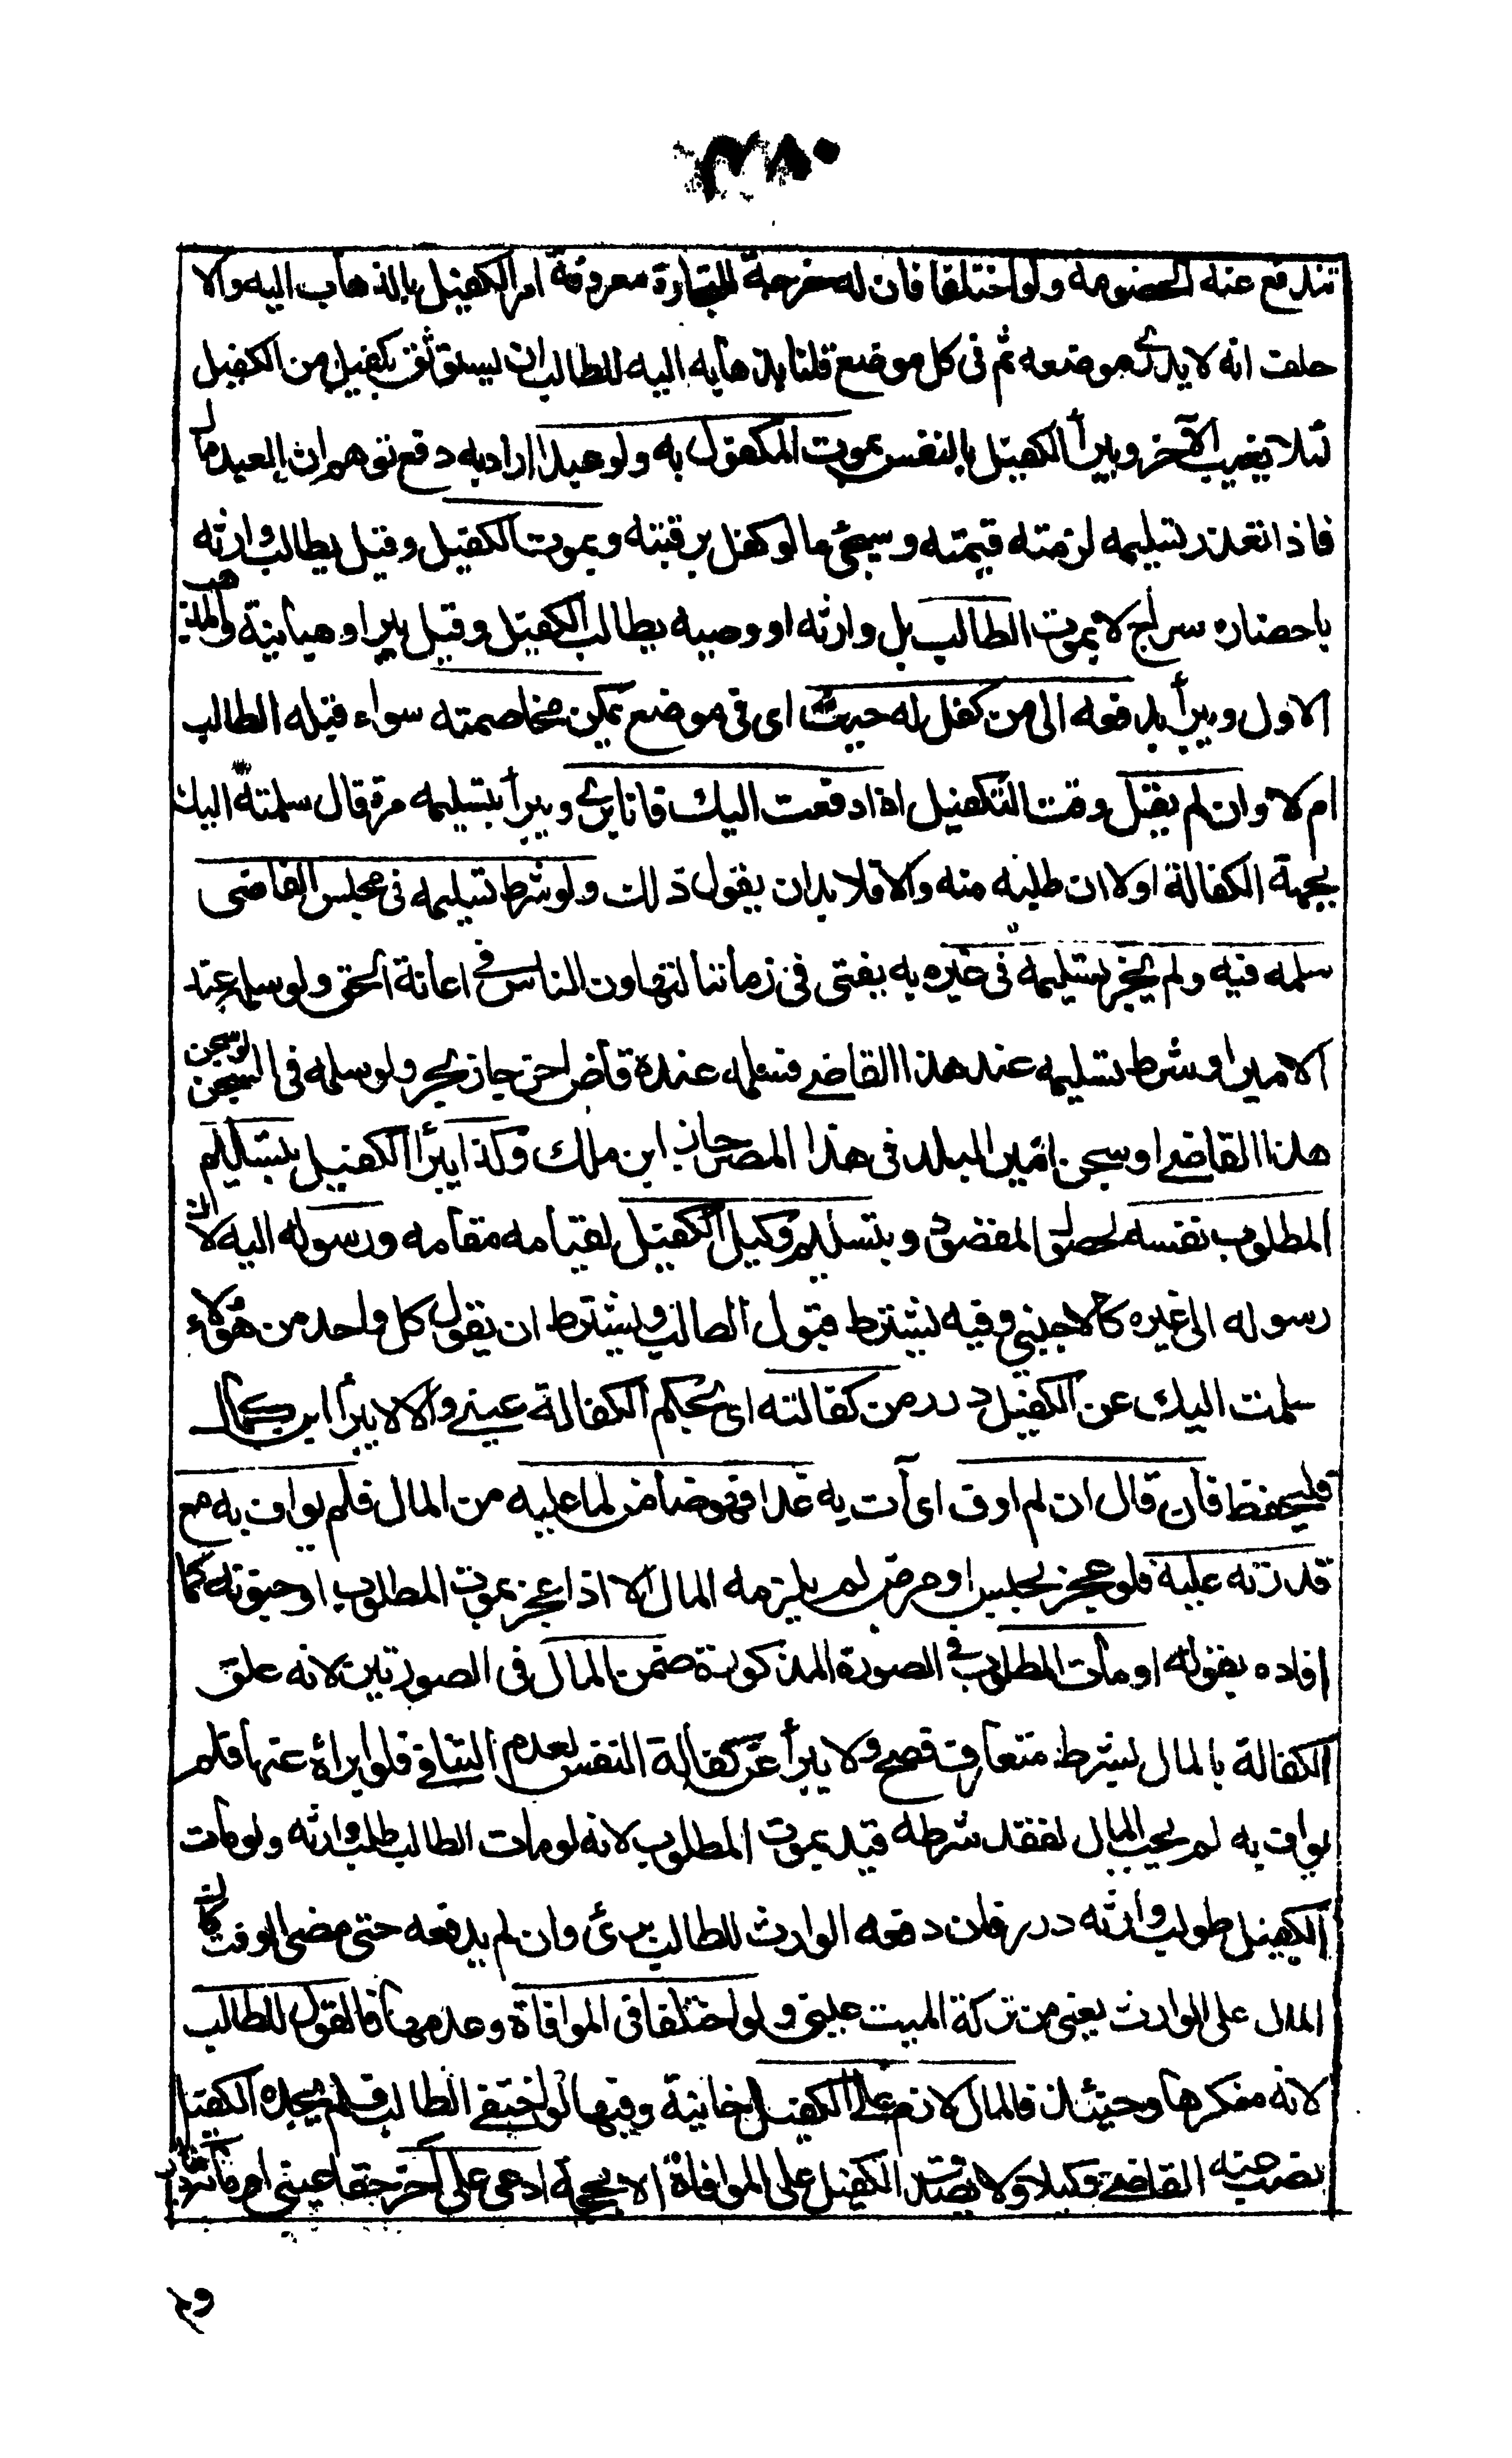 ٣٨٠
تندفع عنه الخصومة ولو اختلفا فان له خرجة للتجارة معروفة امر الكفيل بالذهاب اليه والا
حلف انه لا يدرى موضعه ثم فى كل موضع قلنا بذهابه اليه للطالب ان يستوثق بكفيل من الكفيل
لئلا يغيب الآخر ويبرأ الكفيل بالنفس بموت المكفول به ولو عبدا اراد به دفع توهم ان العبد مال
فاذا تعذر تسليمه لزمته قيمته وسيجئ ما لو كفل برقبته وبموت الكفيل وقيل يطالب وارثه
باحضاره سراج لا بموت الطالب بل وارثه او وصيه يطالب الكفيل وقيل يبرا وهبانية والمذهب
الاول ويبرأ بدفعه الى من كفل له حيث اى فى موضع يمكن مخاصمته سواء قبله الطالب
ام لا وان لم يقل وقت التكفيل اذا دفعت اليك فانا برئ ويبرأ بتسليمه مرة قال سلمته اليك
بجهة الكفالة اولا ان طلبه منه والا فلا بد ان يقول ذلك ولو شرط تسليمه فى مجلس القاضى
سلمه فيه ولم يجز تسليمه فى غيره به يفتى فى زماننا لتهاون الناس فى اعانة الحق ولو سلمه عند
الامير او شرط تسليمه عند هذا القاضى فسلمه عنده قاض اخر جاز بحر ولو سلمه فى السجن لو سجن
هذا القاضى او سجن امير البلد فى هذا المصر جاز ابن ملك وكذا يبرأ الكفيل بتسليم
المطلوب نفسه لحصول المقصود وبتسليم وكيل الكفيل لقيامه مقامه ورسوله اليه لان
رسوله الى غيره كالاجنبى وفيه يشترط قبول الطالب ويشترط ان يقول كل واحد من هؤلاء
سلمت اليك عن الكفيل درر من كفالته اى بحكم الكفالة عينى والا لا يبرأ ابن كمال
فليحفظ فان قال ان لم اوف اى آت به غدا فهو ضامن لما عليه من المال فلم يواف به مع
قدرته عليه فلو عجز بحبس او مرض لم يلزمه المال الا اذا عجز بموت المطلوب او جنونه كما
افاده بقوله او مات المطلوب فى الصورة المذكورة ضمن المال فى الصورتين لانه علق
الكفالة بالمال بشرط متعارف فصح ولا يبرأ عن كفالة النفس لعدم التنافى فلو ابراه عنها فلم
يواف به لم يجب المال لفقد شرطه قيد بموت المطلوب لانه لو مات الطالب طلب وارثه ولو مات
الكفيل طولب وارثه درر فان دفعه الوارث للطالب برئ وان لم يدفعه حتى مضى الوقت كان
المال على الوارث يعنى من تركة الميت عينى ولو اختلفا فى الموافاة وعدمها فالقول للطالب
لانه منكرها وحينئذ فالمال لازم على الكفيل خانية وفيها لو اختفى الطالب فلم يجده الكفيل
نصب عنه القاضى وكيلا ولا يصدق الكفيل على الموافاة الا بحجة ادعى على آخر حقا عينى او مائة دينار